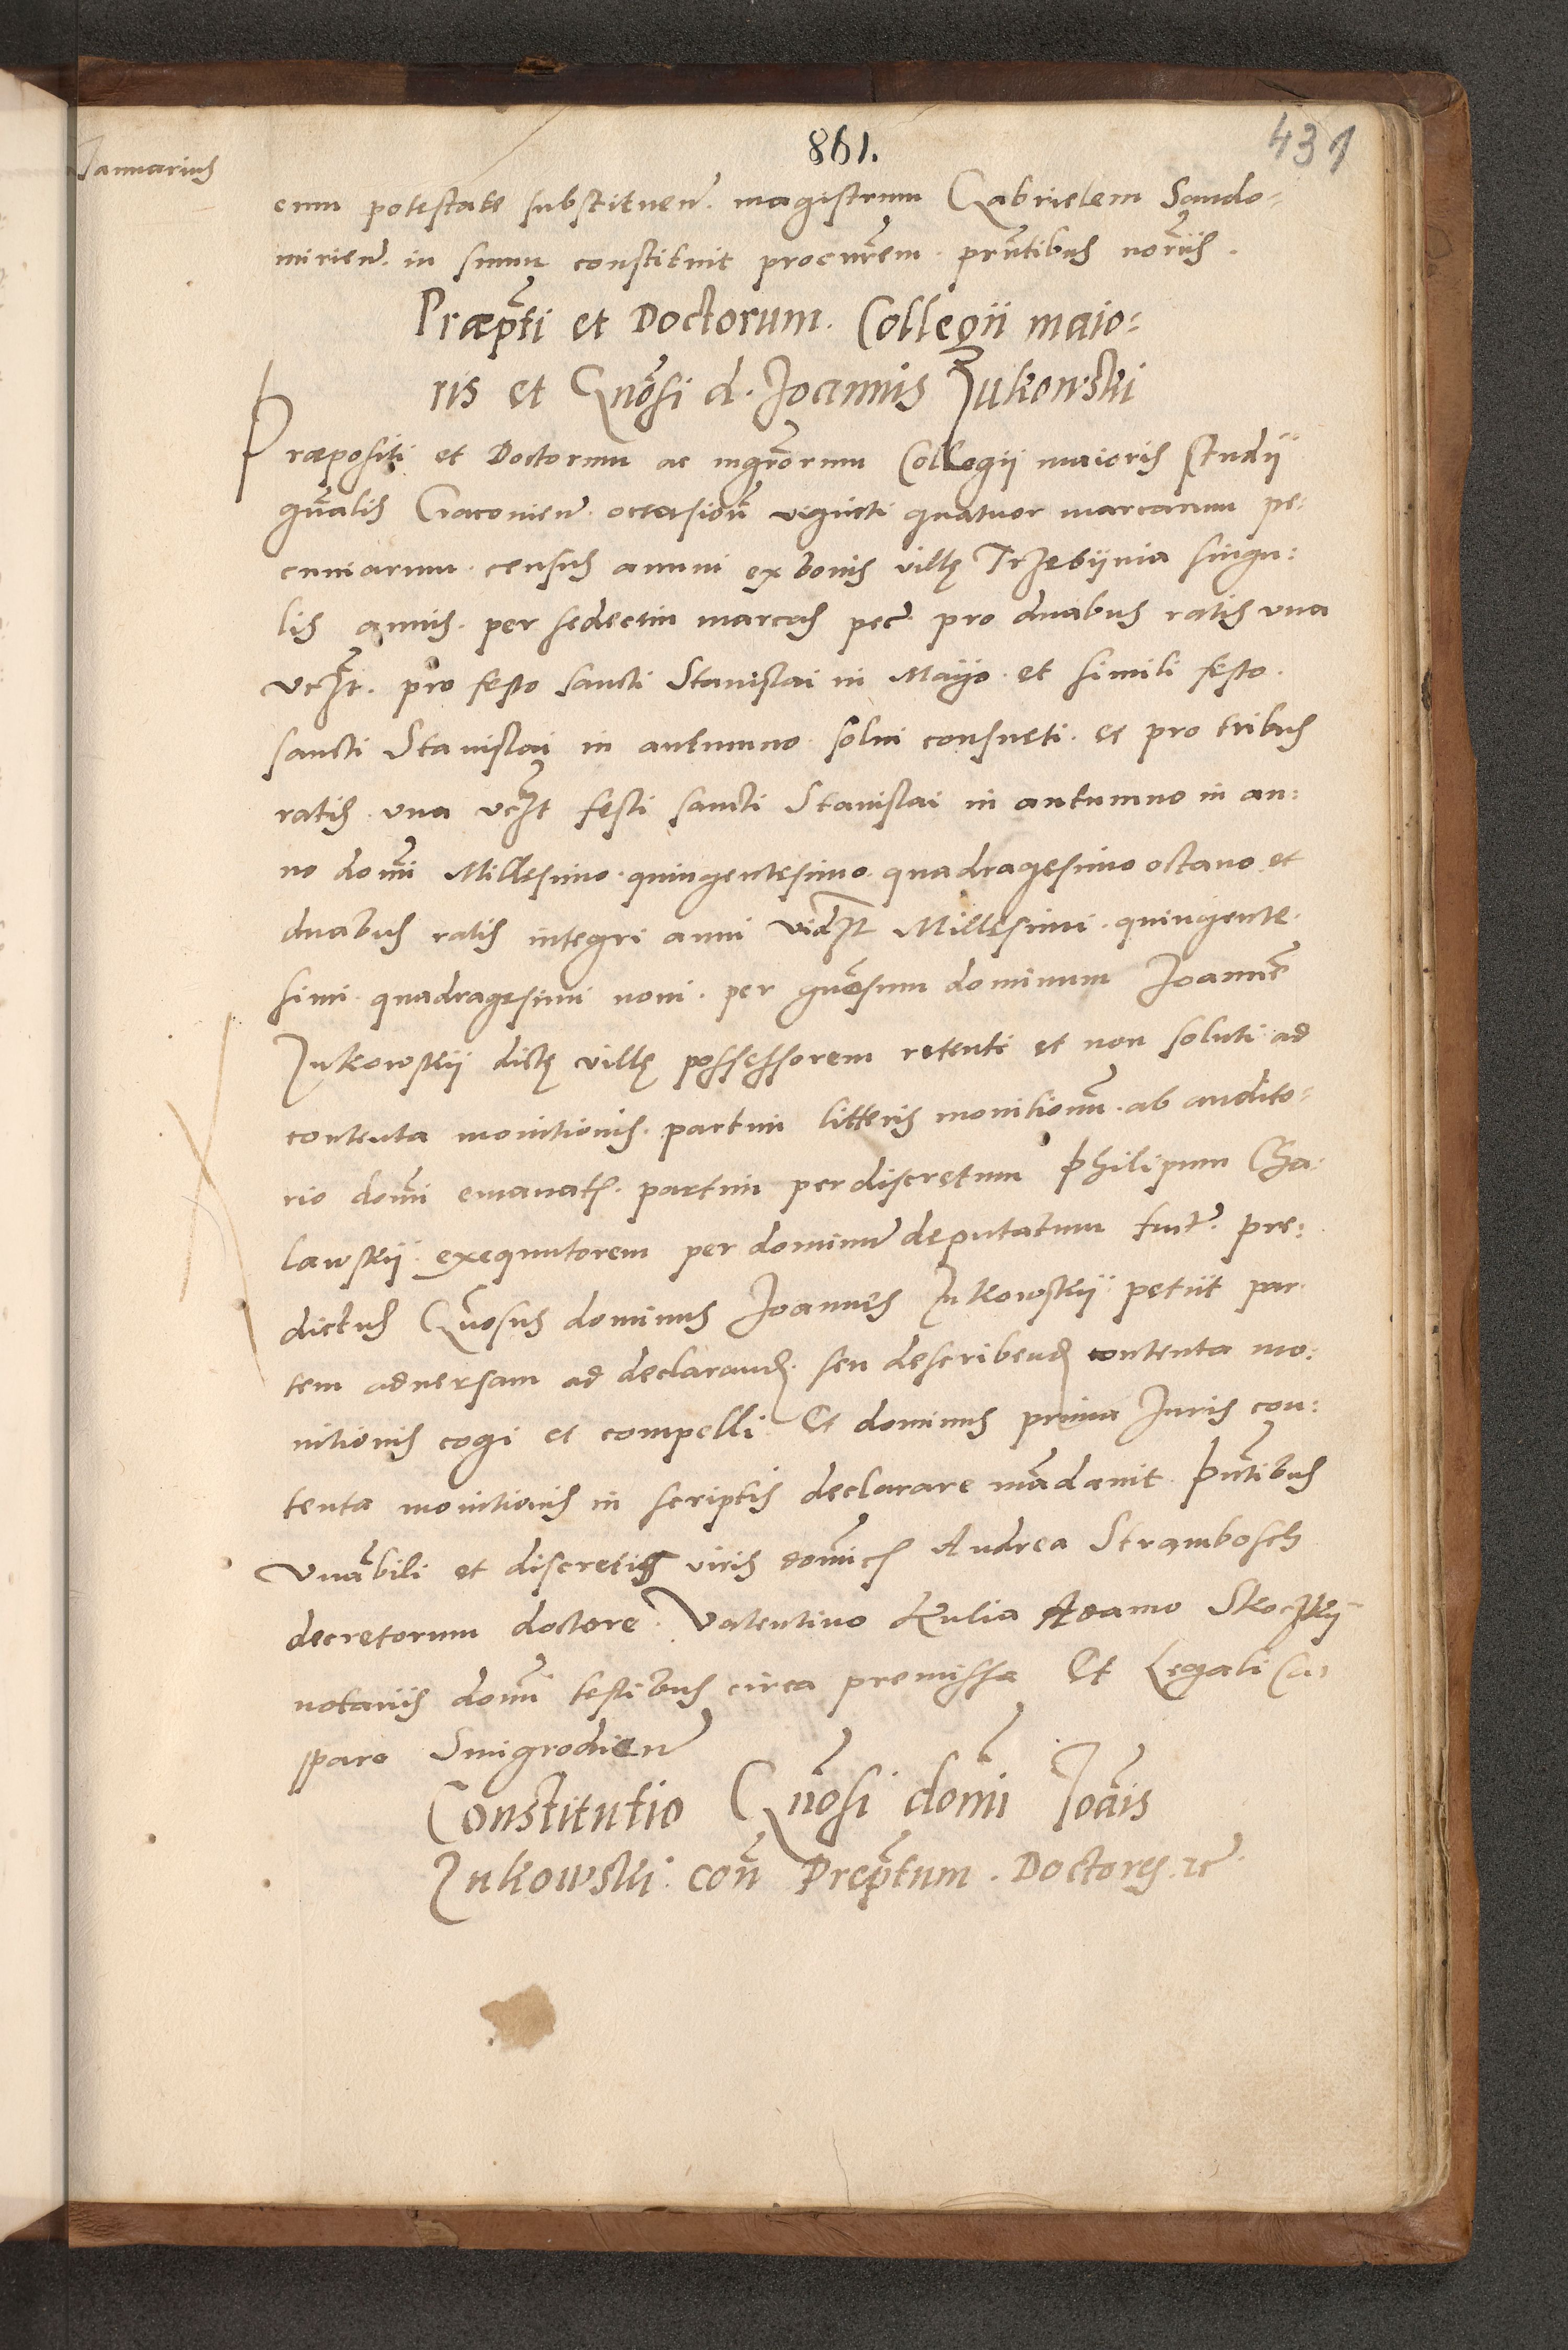 861.
431
Januarius
cum potestate substituen. magistrum Gabrielem Sando=
mirien. in suum constituit procurem. pn̄tibus noriis.
Præpti et Doctorum. Collegii maio:
ris et Gn̄osi d. Joannis Zukowski
Præpositi et Doctorum ac mgrorum Collegij maioris studij
gn̄alis Cracovien. occasione viginti quatuor marcarum pe:
cuniarum. census annui ex bonis villę Trzebijnia singu:
lis annis. per sedecim marcas pec. pro duabus ratis una
vczt. pro festo sancti Stanislai in Mayo et simili festo.
sancti Stanislai in autumno solui consueti. et pro tribus
ratis. una vczt festi sancti Stanislai in autumno in an:
no domi Millesimo. quingentesimo. quadragesimo octavo et
duabus ratis integri anni vidzt Millesimi. quingente.
simi. quadragesimi noni. per gn̄osum dominum Joannē
Zukowskij dictę villę possessorem retenti et non soluti ad
contenta monitionis. partim litteris monitionū. ab audito=
rio domi emanatis. partim per discretum Philipum Cha:
lawskij exequutorem per dominum deputatum fact. pre:
dictus Gn̄osus dominus Joannes Zukowskij petiit par
tem adversam ad declarand. seu describend contenta mo:
nitionis cogi et compelli Et dominus prima Juris con:
tenta monitionis in scriptis declarare mādavit. Pn̄tibus
Vnābili et discretis viris domis Andrea Strambosch
decretorum doctore. Valentino Kulia Adamo Skoczkij
notariis domi testibus circa premissa Et Legali Ca:
sparo Smigrodien
Constitutio Gn̄osi domi Joāis
Zukowski. con̄ Preptum. Doctores. etc.